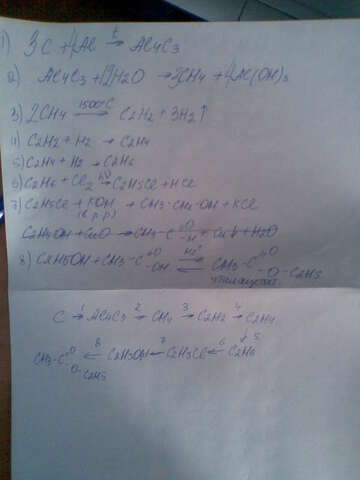 1) 3C + 4Al →t Al4C3
2) Al4C3 + 12H2O → 3CH4 + 4Al(OH)3
3) 2CH4 →1500°C C2H2 + 3H2↑
4) C2H2 + H2 → C2H4
5) C2H4 + H2 → C2H6
6) C2H6 + Cl2 →hν C2H5Cl + HCl
7) C2H5Cl + KOH → CH3-CH2-OH + KCl
(в. р-р)
C2H5OH + CuO → CH3-C=O -H + Cu↓ + H2O
8) C2H5OH + CH3-C=O -OH ⇄H+ CH3-C=O -O-C2H5
C →1 Al4C3 →2 CH4 →3 C2H2 →4 C2H4
↓5
CH3-C=O O-C2H5 ←8 C2H5OH ←7 C2H5Cl ←6 C2H6